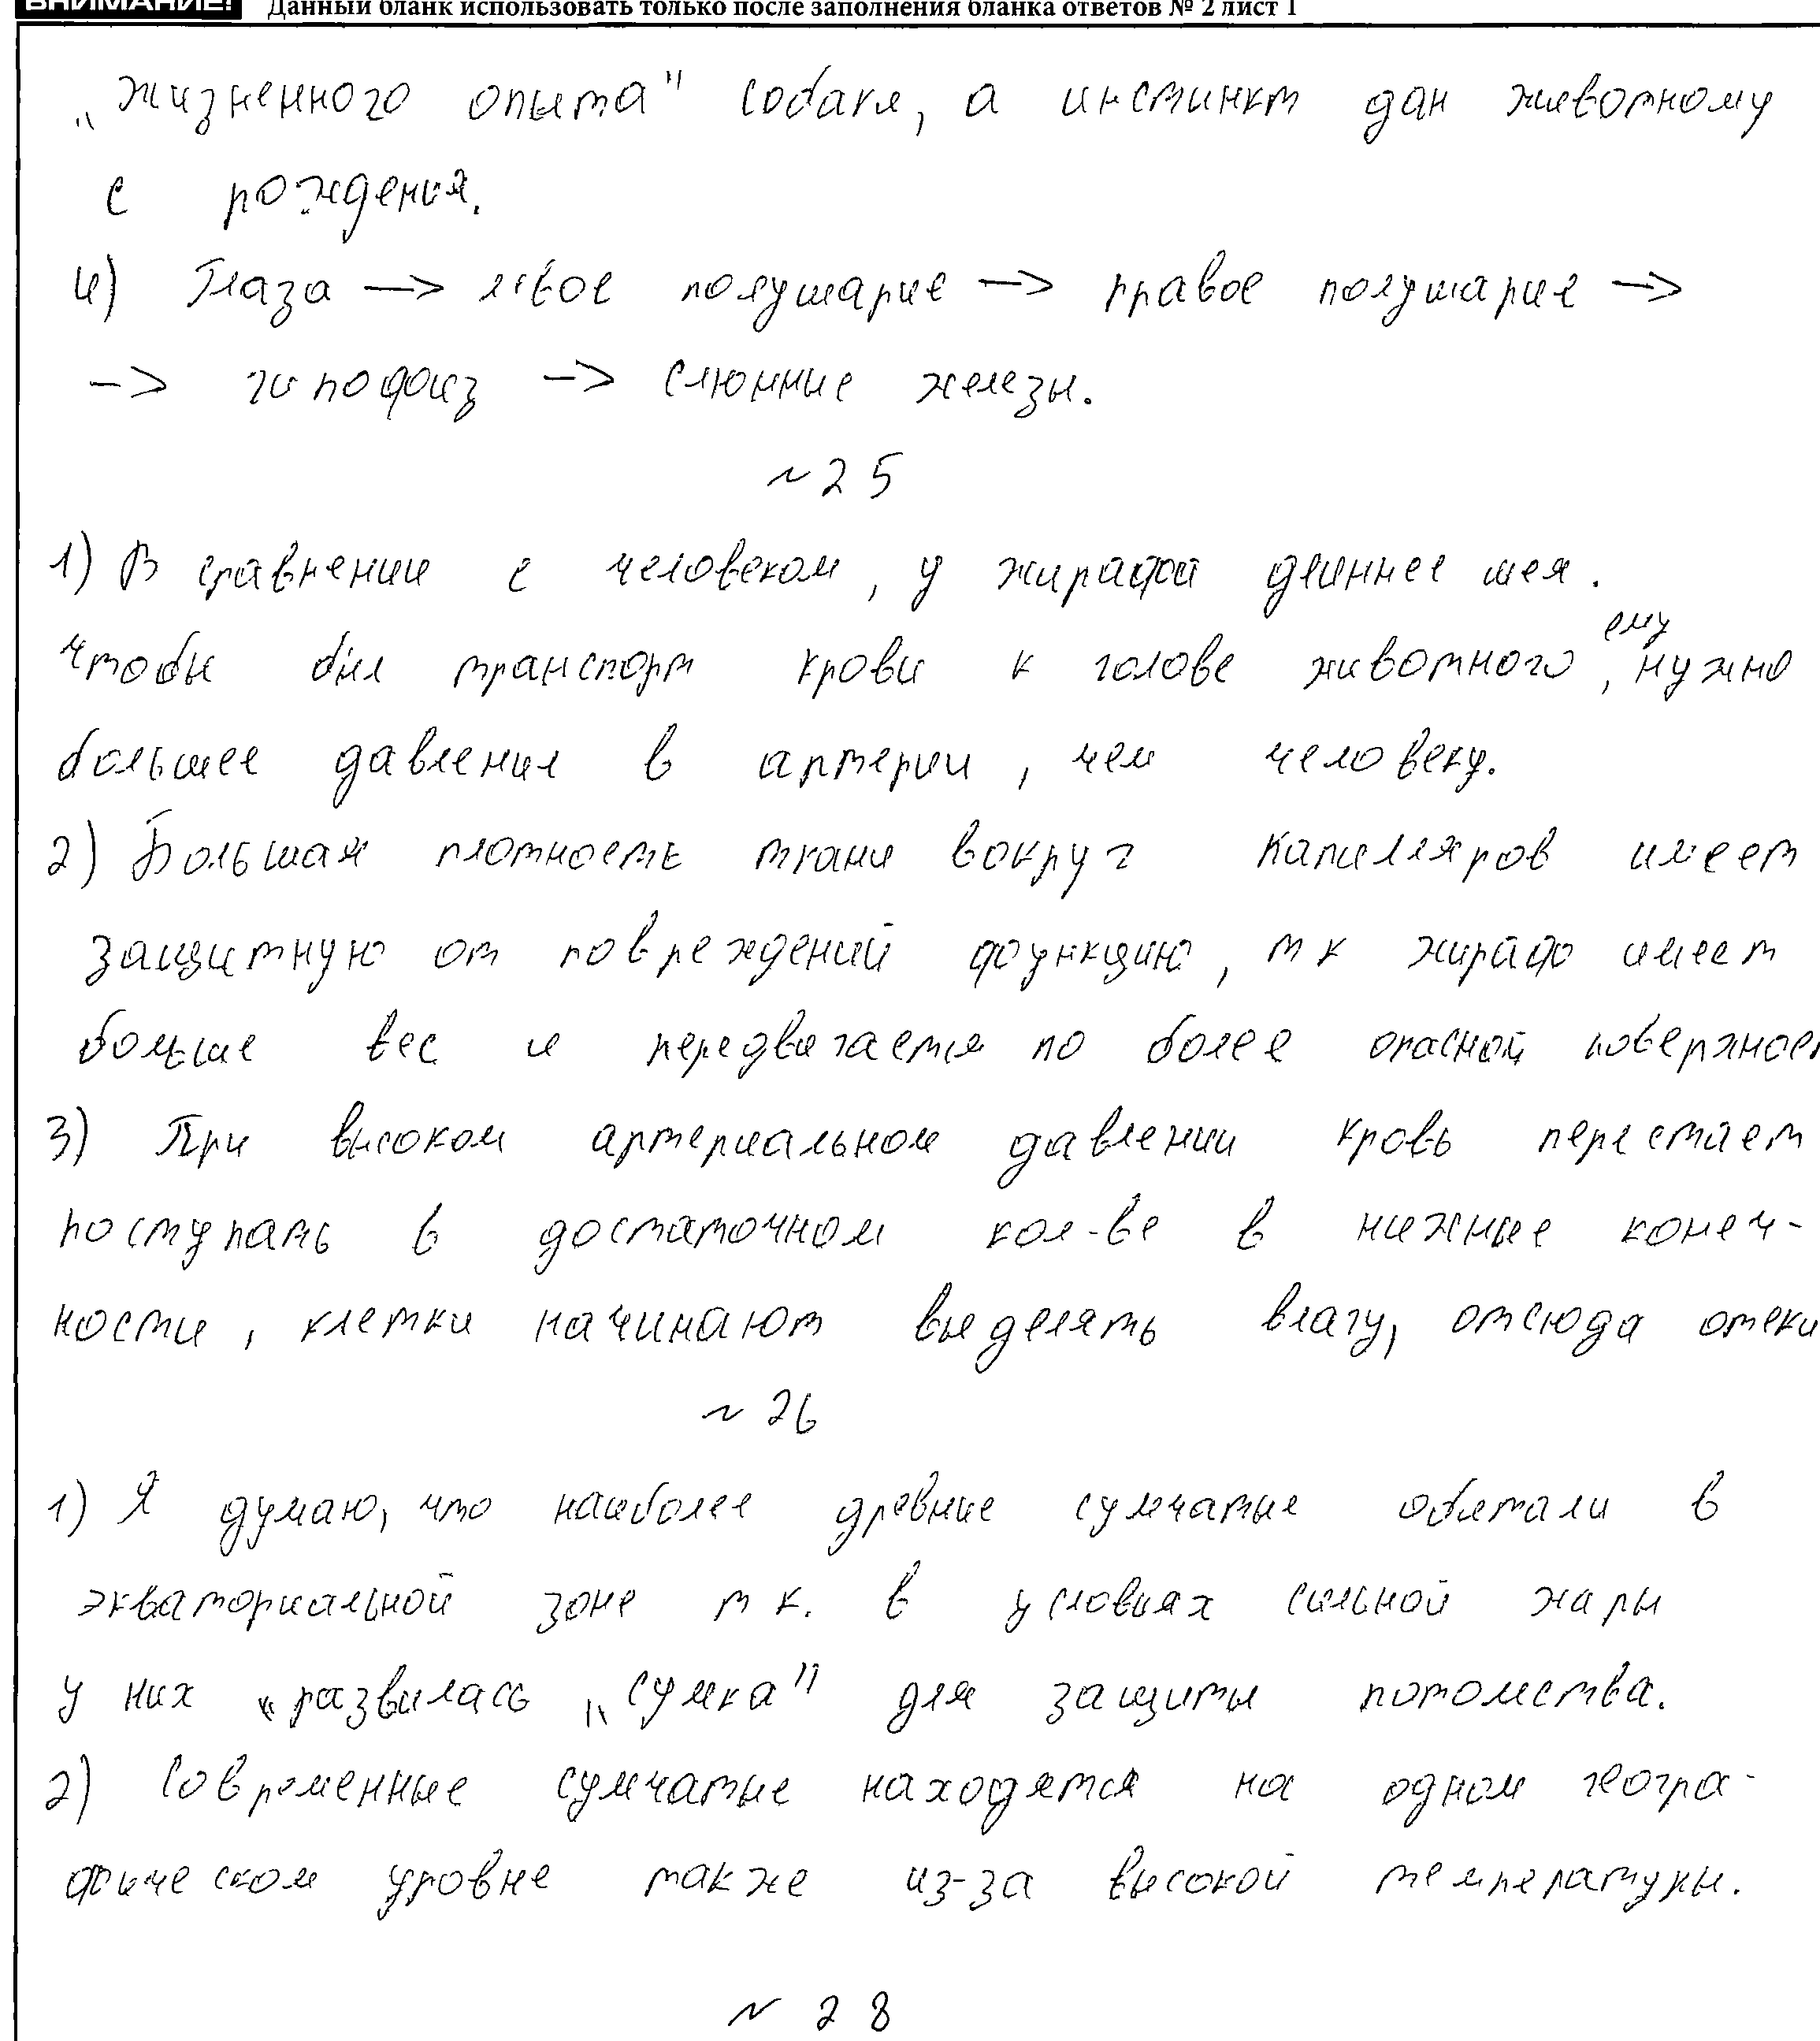 ВНИМАНИЕ! Данный бланк использовать только после заполнения бланка ответов № 2 лист 1
„жизненного опыта" собаки, а инстинкт дан животному
с рождения.
4) Глаза —> левое полушарие —> правое полушарие —>
—> гипофиз —> слюнные железы.
~ 25
1) В сравнении с человеком, у жирафа длиннее шея.
ему
чтобы был транспорт крови к голове животного, нужно
большее давления в артерии, чем человеку.
2) Большая плотность ткани вокруг капилляров имеет
защитную от повреждений функцию, т к жираф имеет
больше вес и передвигается по более опасной поверхност
3) При высоком артериальном давлении кровь перестаёт
поступать в достаточном кол-ве в нижние конеч-
ности, клетки начинают выделять влагу, отсюда отеки
~ 26
1) Я думаю, что наиболее древние сумчатые обитали в
экваториальной зоне т к. в условиях сильной жары
у них „развилась „сумка" для защиты потомства.
2) Современные сумчатые находятся на одном геогра-
фическом уровне также из-за высокой температуры.
~ 28